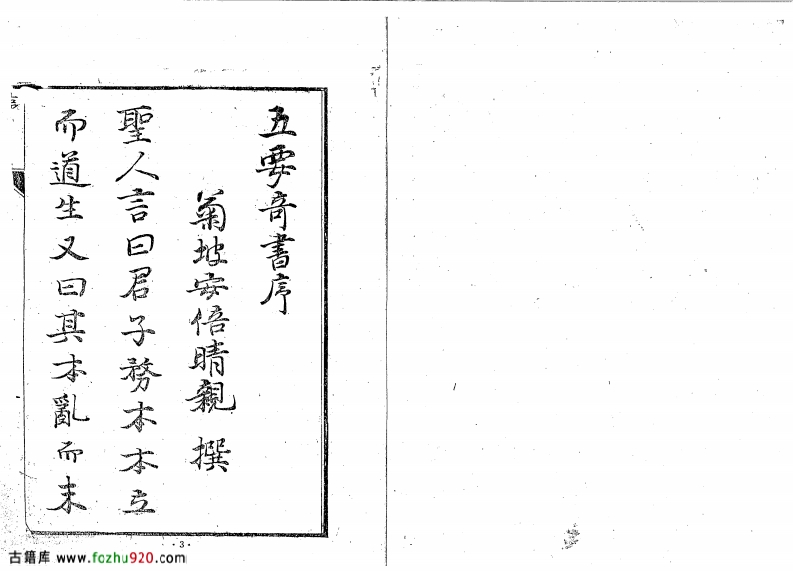 五要奇書序
菊坡安倍晴親 撰
聖人言曰君子務本本立
而道生又曰其本亂而末
·3·
古籍库 www.fozhu920.com